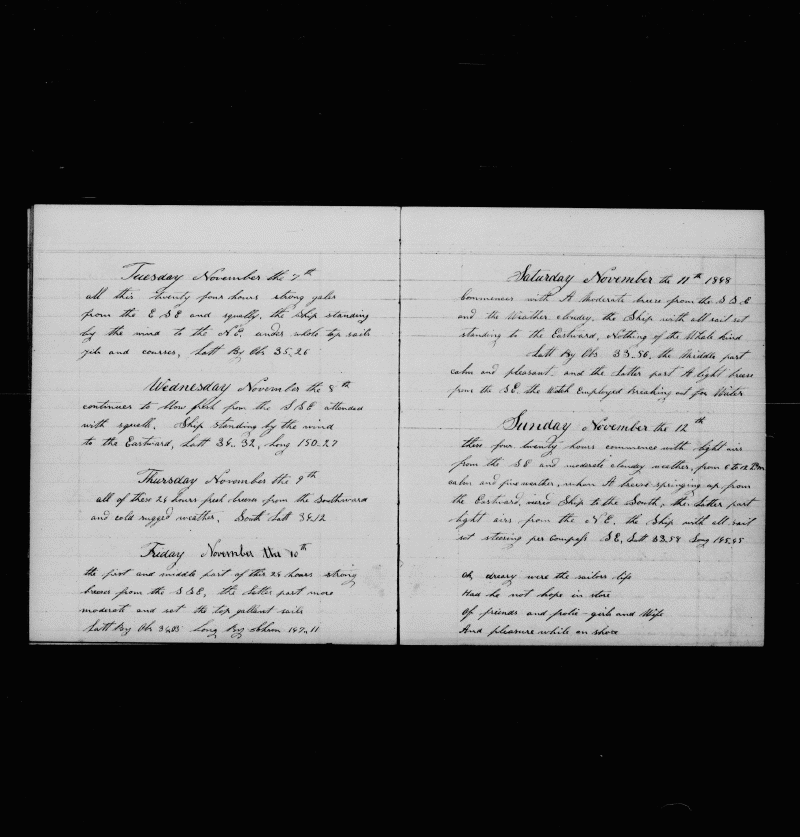 Tuesday November the 7th
all this twenty four hours strong gales
from the E S E and squally, the Ship standing
by the wind to the N.E. under whole top sails
jib and courses, Latt By Obs 35..26
Wednesday November the 8th
continues to blow fresh from the S.S.E attended
with squalls. Ship standing by the wind
to the Eastward, Latt 34..32, Long 150-27
Thursday November the 9th
all of these 24 hours fresh breeses from the Southward
and cold rugged weather, South Latt 34.12
Friday November the 10th
the first and middle part of this 24 hours strong
breeses from the S.S.E, the latter part more
moderate and set the top gallant sails
Latt By Obs Long By Chron 147..11
Saturday November the 11th 1848
Commences with A Moderate breese from the S.S.E
and the Weather cloudy, the Ship with all sail set
standing to the Eastward, Nothing of the Whale kind
Latt By Obs 33..56, the Middle part
calm and pleasant, and the Latter part A light breese
from the S.E. the Watch Employed Breaking out for Water
Sunday November the 12th
these four twenty hours commence with light airs
from the SE and moderate cloudy weather, from 6 to 12 P.m
calm and fine weather, when A breese springing up from
the Eastward, Ship to the South, the latter part
light airs from the N.E. the Ship with all sail
set steering per Compass S.E, Latt 33.58 Long 145,45
Oh, dreary were the sailors life
Had he not hope in store
Of friends and girls and Wife
And pleasure while on shore